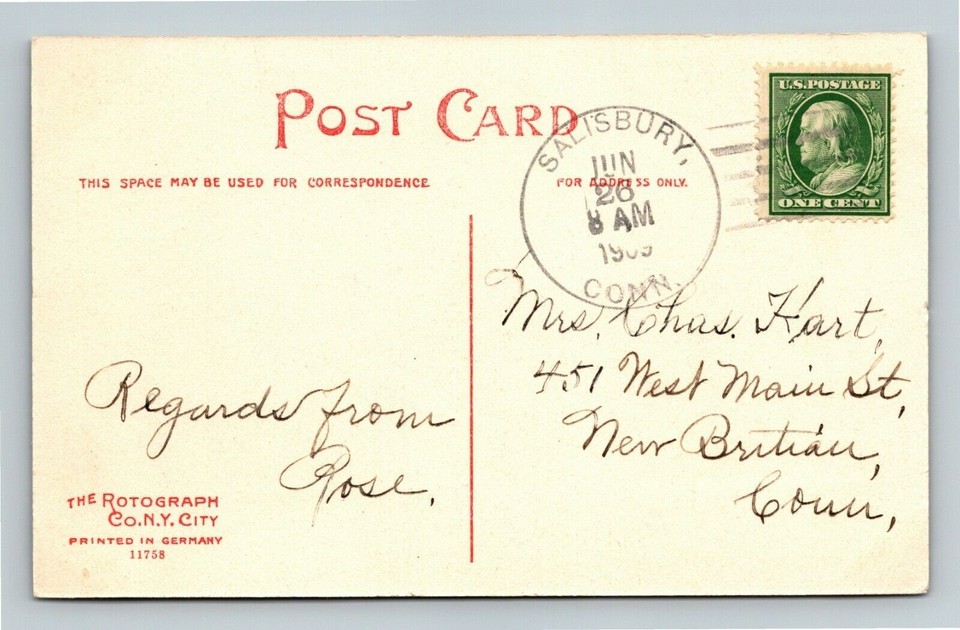 POST CARD
THIS SPACE MAY BE USED FOR CORRESPONDENCE
FOR ADDRESS ONLY.
U.S. POSTAGE
ONE CENT
SALISBURY,
JUN
26
8 AM
1909
CONN.
Mrs. Chas. Hart,
451 West Main St,
New Britian,
Conn,
Regards from
Rose.
THE ROTOGRAPH
CO. N.Y. CITY
PRINTED IN GERMANY
11758